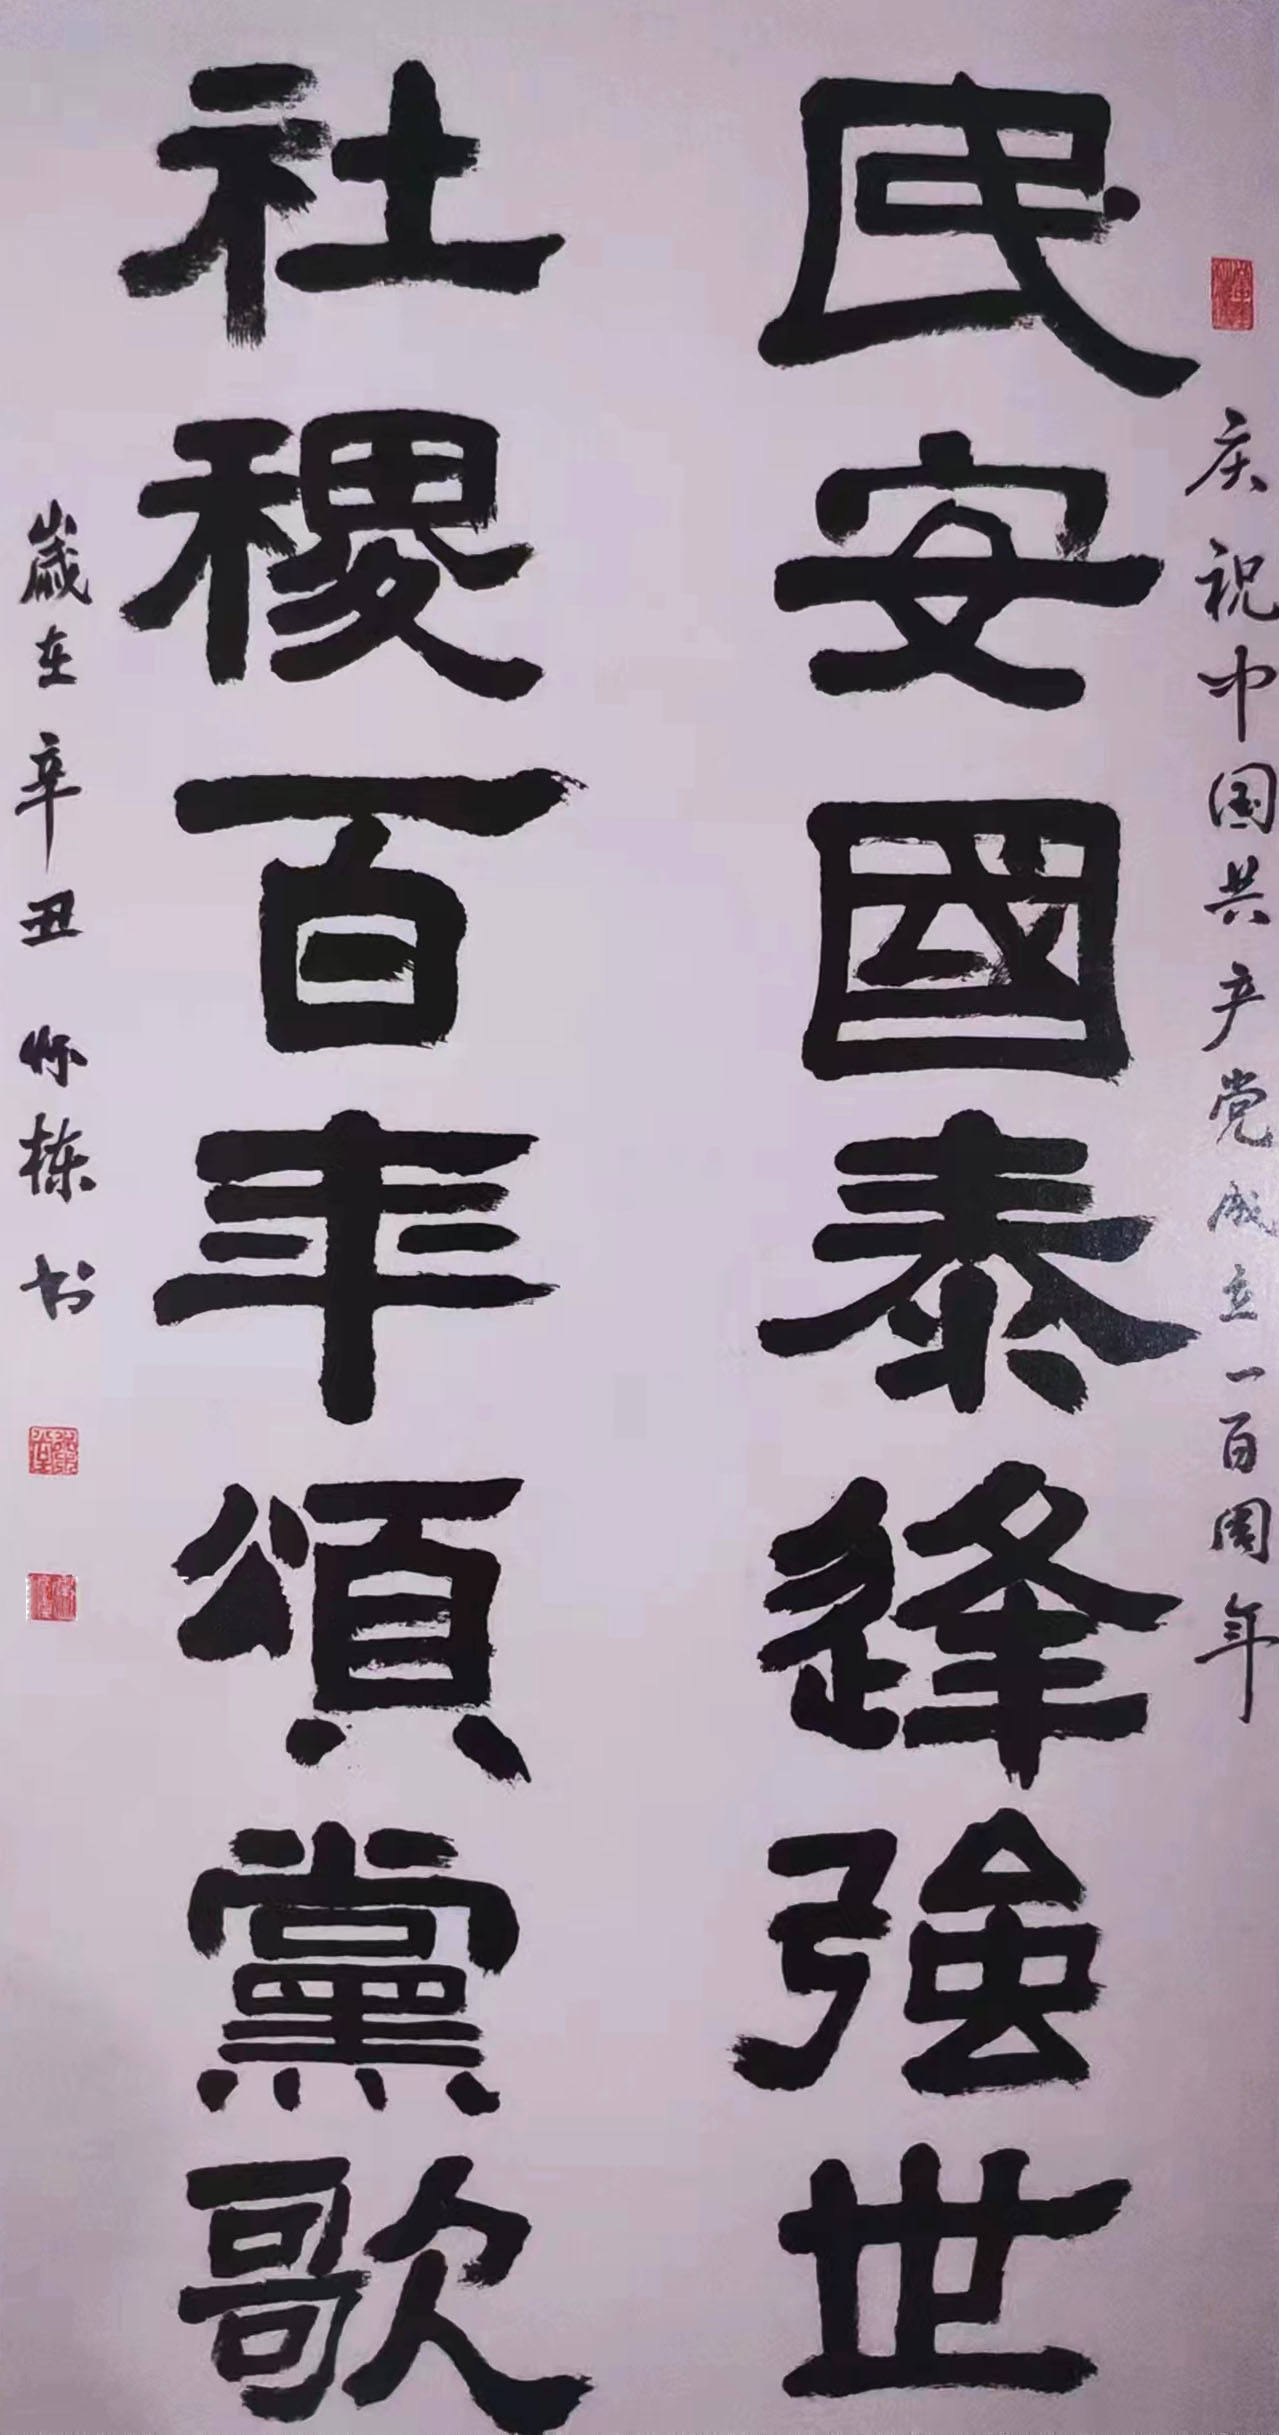 庆祝中国共产党成立一百周年
民安國泰逢強世
社稷百年頌黨歌
歲在辛丑 怀栋书